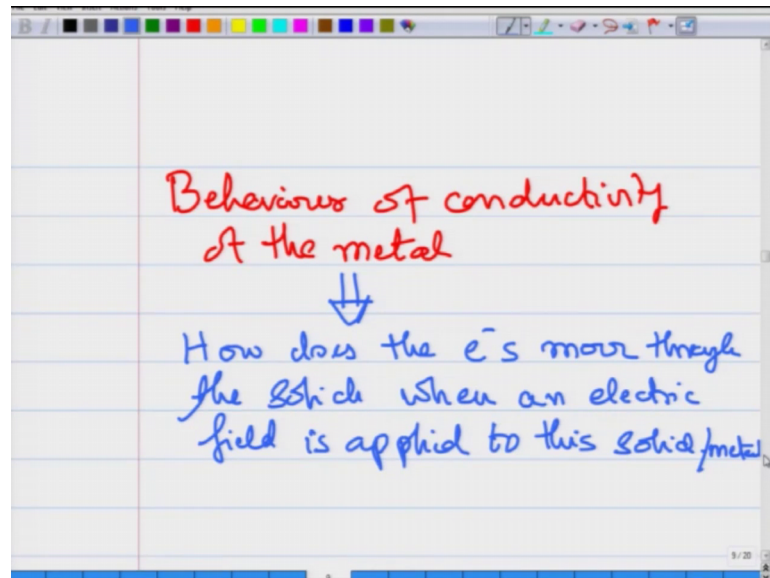 Behaviour of conductivity
of the metal
⇓
How does the e⁻s move through
the solid when an electric
field is applied to this solid/metal
9/20